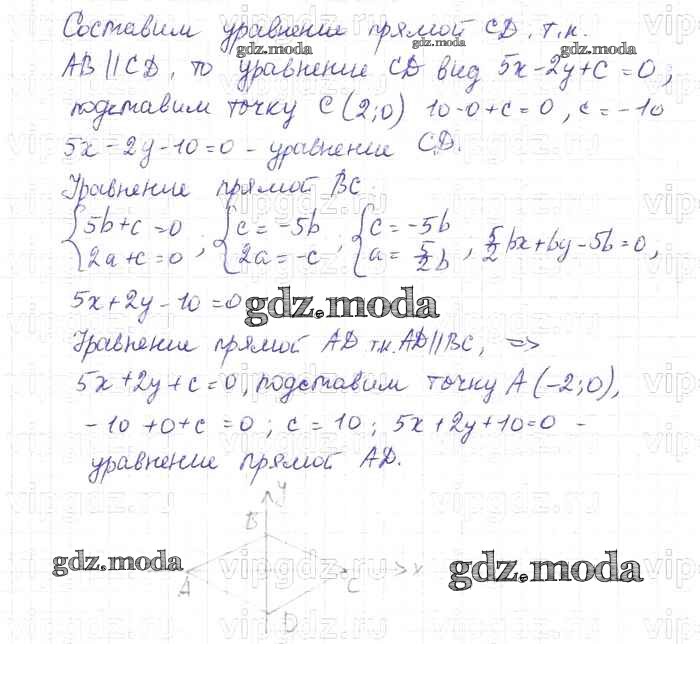 Составим уравнение прямой CD, т.к.
AB || CD, то уравнение CD вид 5x-2y+C=0,
подставим точку C(2;0) 10-0+c=0, c=-10
5x-2y-10=0 - уравнение CD.
Уравнение прямой BC:
{5b+c=0 {c=-5b {c=-5b
{2a+c=0 ; {2a=-c ; {a=5/2b , 5/2bx+by-5b=0,
5x+2y-10=0
gdz.moda
Уравнение прямой AD т.к. AD||BC, =>
5x+2y+c=0, подставим точку A(-2;0),
-10+0+c=0; c=10; 5x+2y+10=0 -
уравнение прямой AD.
y
B
A C x
D
gdz.moda gdz.moda
gdz.moda gdz.moda
gdz.moda gdz.moda
vipgdz.ru